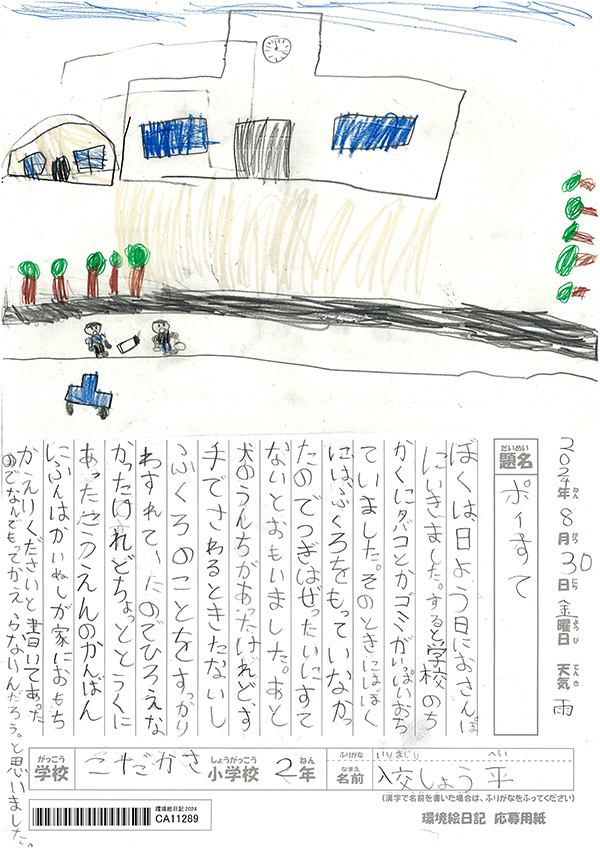 2024年ねん 8月がつ 30日にち 金曜日ようび 天気てんき 雨
だいめい
題名 ポイすて
ぼくは、日よう日におさんぽ
にいきました。すると学校のち
かくにタバコとかゴミがいっぱいおち
ていました。そのときにはぼく
にはふくろをもっていなかっ
たのでつぎはぜったいにすて
ないとおもいました。あと
犬のうんちがあったけれど、す
手でさわるときたないし
ふくろのことをすっかり
わすれていたのでひろえな
かったけれどちょっととうくに
あったこうえんのかんばん
にふんはかいぬしが家におもち
かえりくださいと書いてあった
のでなんでもってかえらないんだろう。と思いました。
がっこう 学校 こやだかさ しょうがっこう 小学校 2年ねん
ふりがな いりまじり へい
なまえ 名前 入交しょう平
(漢字で名前を書いた場合は、ふりがなをふってください)
環境絵日記2024
CA11289
環境絵日記 応募用紙